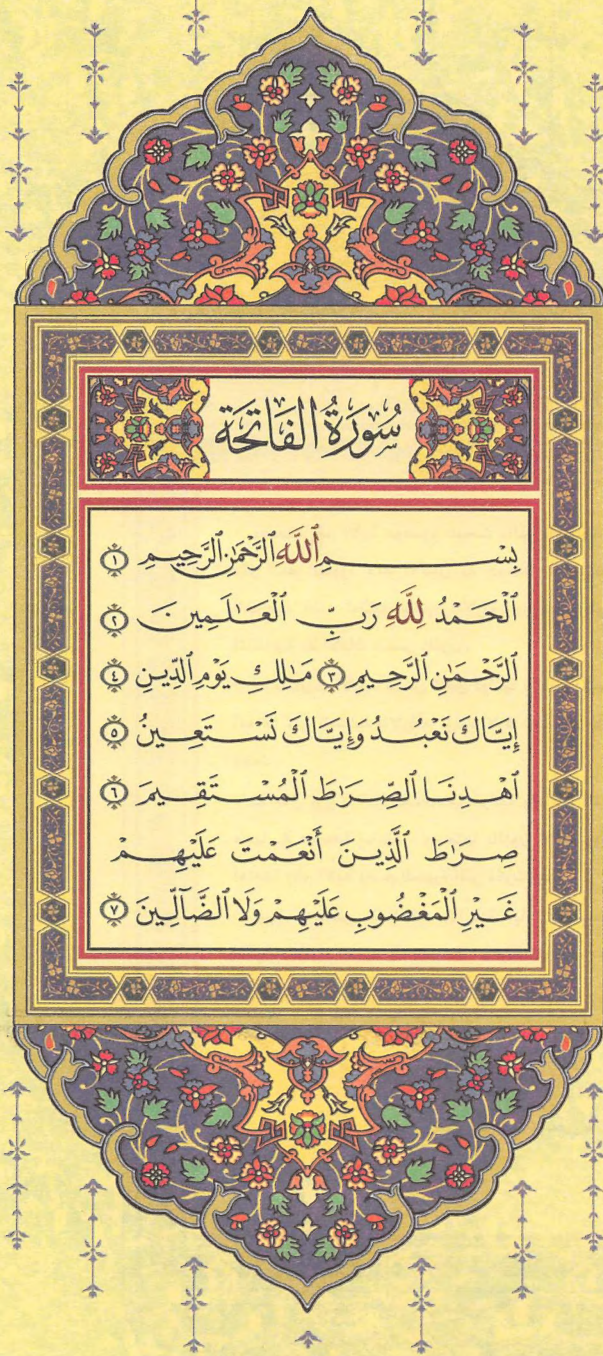 سُورَةُ الفَاتِحَة
بِسْمِ ٱللَّهِ ٱلرَّحْمَٰنِ ٱلرَّحِيمِ ۝١
ٱلْحَمْدُ لِلَّهِ رَبِّ ٱلْعَٰلَمِينَ ۝٢
ٱلرَّحْمَٰنِ ٱلرَّحِيمِ ۝٣ مَٰلِكِ يَوْمِ ٱلدِّينِ ۝٤
إِيَّاكَ نَعْبُدُ وَإِيَّاكَ نَسْتَعِينُ ۝٥
ٱهْدِنَا ٱلصِّرَٰطَ ٱلْمُسْتَقِيمَ ۝٦
صِرَٰطَ ٱلَّذِينَ أَنْعَمْتَ عَلَيْهِمْ
غَيْرِ ٱلْمَغْضُوبِ عَلَيْهِمْ وَلَا ٱلضَّآلِّينَ ۝٧